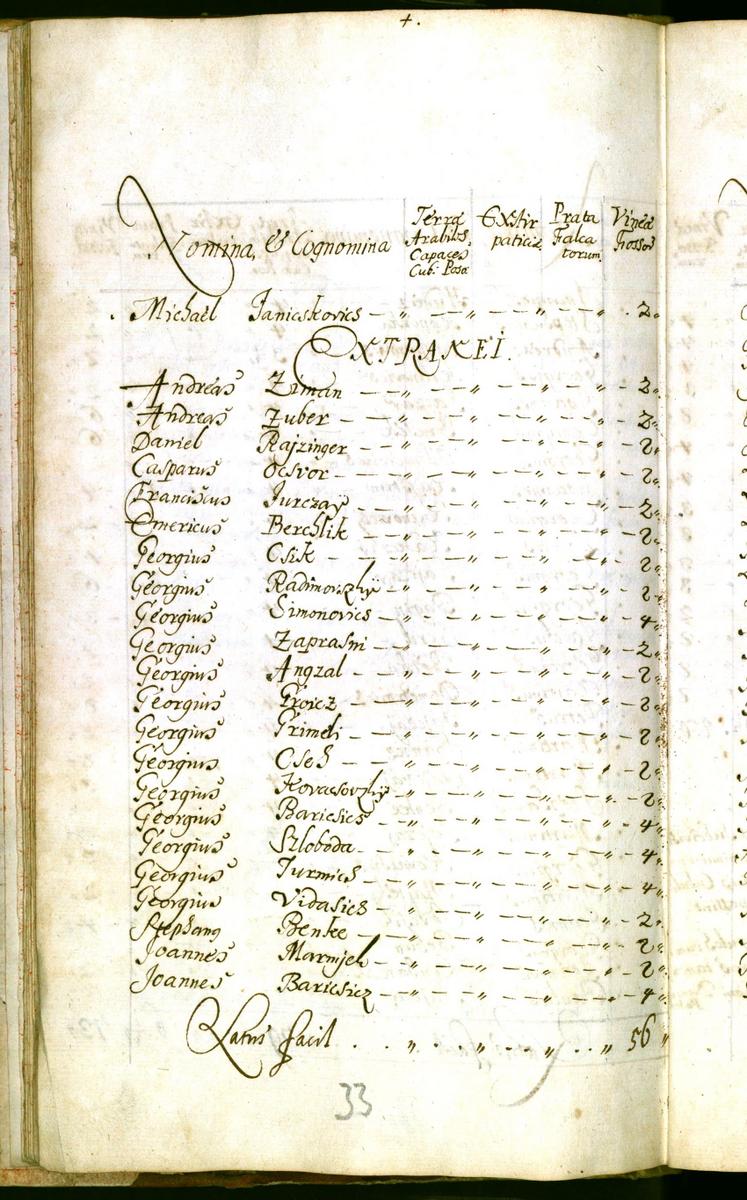 4.
Nomina, & Cognomina Terræ Arabiles Capaces Cub: Poso: Extirpaticiæ Prata Falcatorum Vineæ Fossor
Michaël Janicskovics — „ — „ — „ — „ — 2.
EXTRANEI.
Andreas Ziman — „ — „ — „ — „ — 2.
Andreas Zuber — „ — „ — „ — „ — 2.
Daniel Rajzinger — „ — „ — „ — „ — 2.
Casparus Ocsvor — „ — „ — „ — „ — 2.
Franciscus Jurczay — „ — „ — „ — „ — 2.
Emericus Berchlik — „ — „ — „ — „ — 2.
Georgius Csik — „ — „ — „ — „ — 2.
Georgius Radimovszky — „ — „ — „ — „ — 2.
Georgius Simonovics — „ — „ — „ — „ — 4.
Georgius Zaprasni — „ — „ — „ — „ — 2.
Georgius Angzal — „ — „ — „ — „ — 2.
Georgius Groicz — „ — „ — „ — „ — 2.
Georgius Grimeli — „ — „ — „ — „ — 2.
Georgius Cseh — „ — „ — „ — „ — 2.
Georgius Kovacsovzky — „ — „ — „ — „ — 2.
Georgius Baricsics — „ — „ — „ — „ — 4.
Georgius Szloboda — „ — „ — „ — „ — 4.
Georgius Jurmics — „ — „ — „ — „ — 4.
Georgius Vidasics — „ — „ — „ — „ — 2.
Stephanus Benke — „ — „ — „ — „ — 2.
Joannes Marmjeh — „ — „ — „ — „ — 2.
Joannes Baricsicz — „ — „ — „ — „ — 4.
Latus facit . . „ . . „ . . „ . . „ 56 „
33